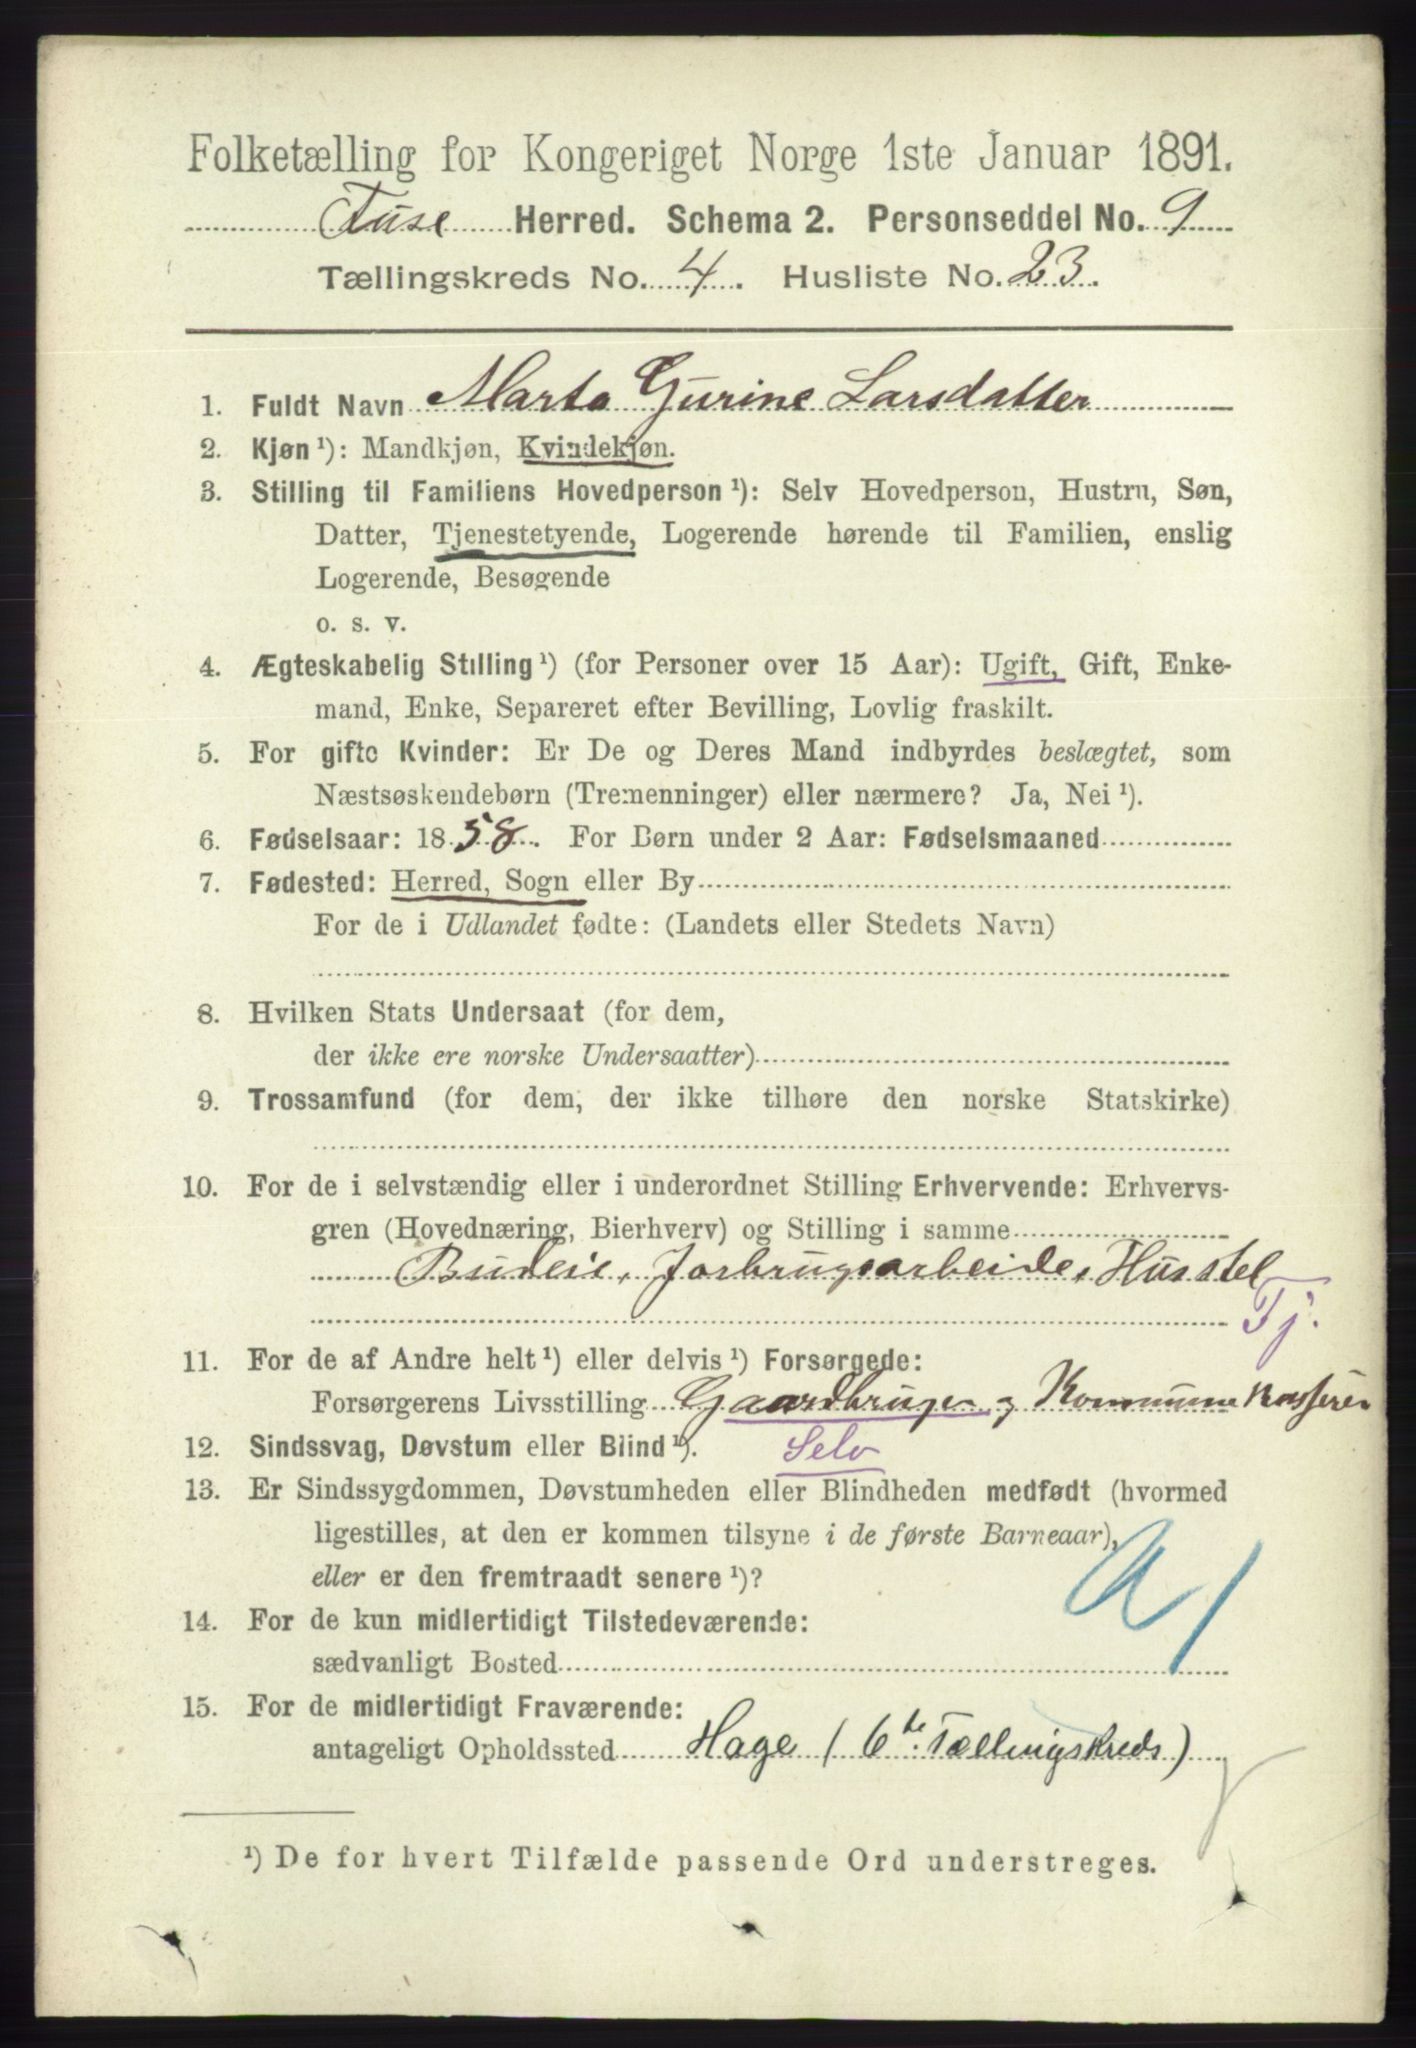 Folketælling for Kongeriget Norge 1ste Januar 1891.
Fuse Herred. Schema 2. Personseddel No. 9
Tællingskreds No. 4. Husliste No. 23.
1. Fuldt Navn Marta Gurine Larsdatter
2. Kjøn ¹): Mandkjøn, Kvindekjøn.
3. Stilling til Familiens Hovedperson ¹): Selv Hovedperson, Hustru, Søn,
Datter, Tjenestetyende, Logerende hørende til Familien, enslig
Logerende, Besøgende
o. s. v.
4. Ægteskabelig Stilling ¹) (for Personer over 15 Aar): Ugift, Gift, Enke-
mand, Enke, Separeret efter Bevilling, Lovlig fraskilt.
5. For gifte Kvinder: Er De og Deres Mand indbyrdes beslægtet, som
Næstsøskendebørn (Tremenninger) eller nærmere? Ja, Nei ¹).
6. Fødselsaar: 1858. For Børn under 2 Aar: Fødselsmaaned
7. Fødested: Herred, Sogn eller By
For de i Udlandet fødte: (Landets eller Stedets Navn)
8. Hvilken Stats Undersaat (for dem,
der ikke ere norske Undersaatter)
9. Trossamfund (for dem, der ikke tilhøre den norske Statskirke)
10. For de i selvstændig eller i underordnet Stilling Erhvervende: Erhvervs-
gren (Hovednæring, Bierhverv) og Stilling i samme
Budeie, Jorbrugsarbeide, Husstel
Tj.
11. For de af Andre helt ¹) eller delvis ¹) Forsørgede:
Forsørgerens Livsstilling Gaardbruger og Kommunekasserer
12. Sindssvag, Døvstum eller Blind ¹). Selv
13. Er Sindssygdommen, Døvstumheden eller Blindheden medfødt (hvormed
ligestilles, at den er kommen tilsyne i de første Barneaar),
eller er den fremtraadt senere ¹)?
14. For de kun midlertidigt Tilstedeværende:
sædvanligt Bosted
15. For de midlertidigt Fraværende:
antageligt Opholdssted Hage (6te Tællingskreds)
¹) De for hvert Tilfælde passende Ord understreges.